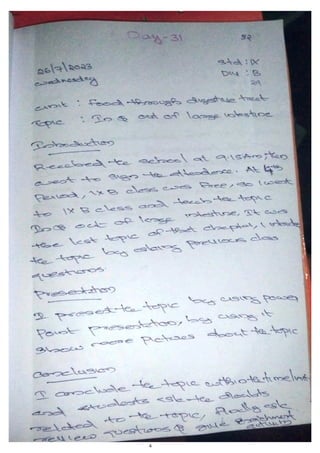 Day-31
52
26/7/2023
Wednesday
Std : IX
Div : B
29
Unit : Food through digestive tract
Topic : In & out of large intestine
Introduction
Reached the school at 9:15 Am, then
went to sign the attendance. At 4th
Period, IX B class was free, so I went
to IX B class and teach the topic
In & out of large intestine, It was
the last topic of that chapter, I
the topic by asking previous class
questions.
Presentation
I present the topic by using power
Point presentation, by using it
show more pictures about the topic
Conclusion
I conclude the topic within the time limit
and students ask the doubts
related to the topic, finally ask
review questions & give enrichment
activity
4